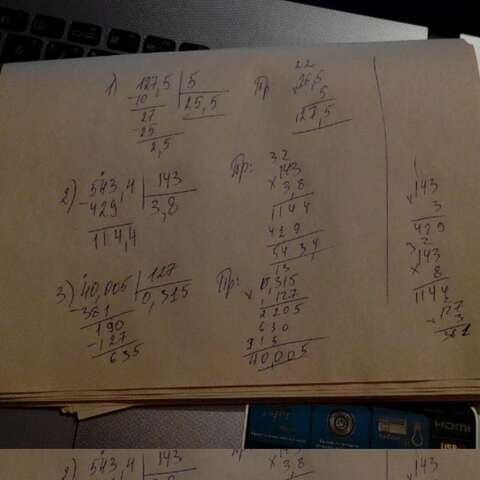 1) 127,5 | 5
-10 | 25,5
27
-25
2,5
Пр
22
25,5
5
127,5
2) 543,4 | 143
-429 | 3,8
114,4
Пр:
32
×143
3,8
1144
429
543,4
×143
3
429
32
×143
8
1144
3) 40,005 | 127
-381 | 0,315
190
-127
635
Пр:
13
×0,315
127
2205
630
315
40,005
×127
3
381
HDMI
2) 543,4 | 143
×143
3,8
×143